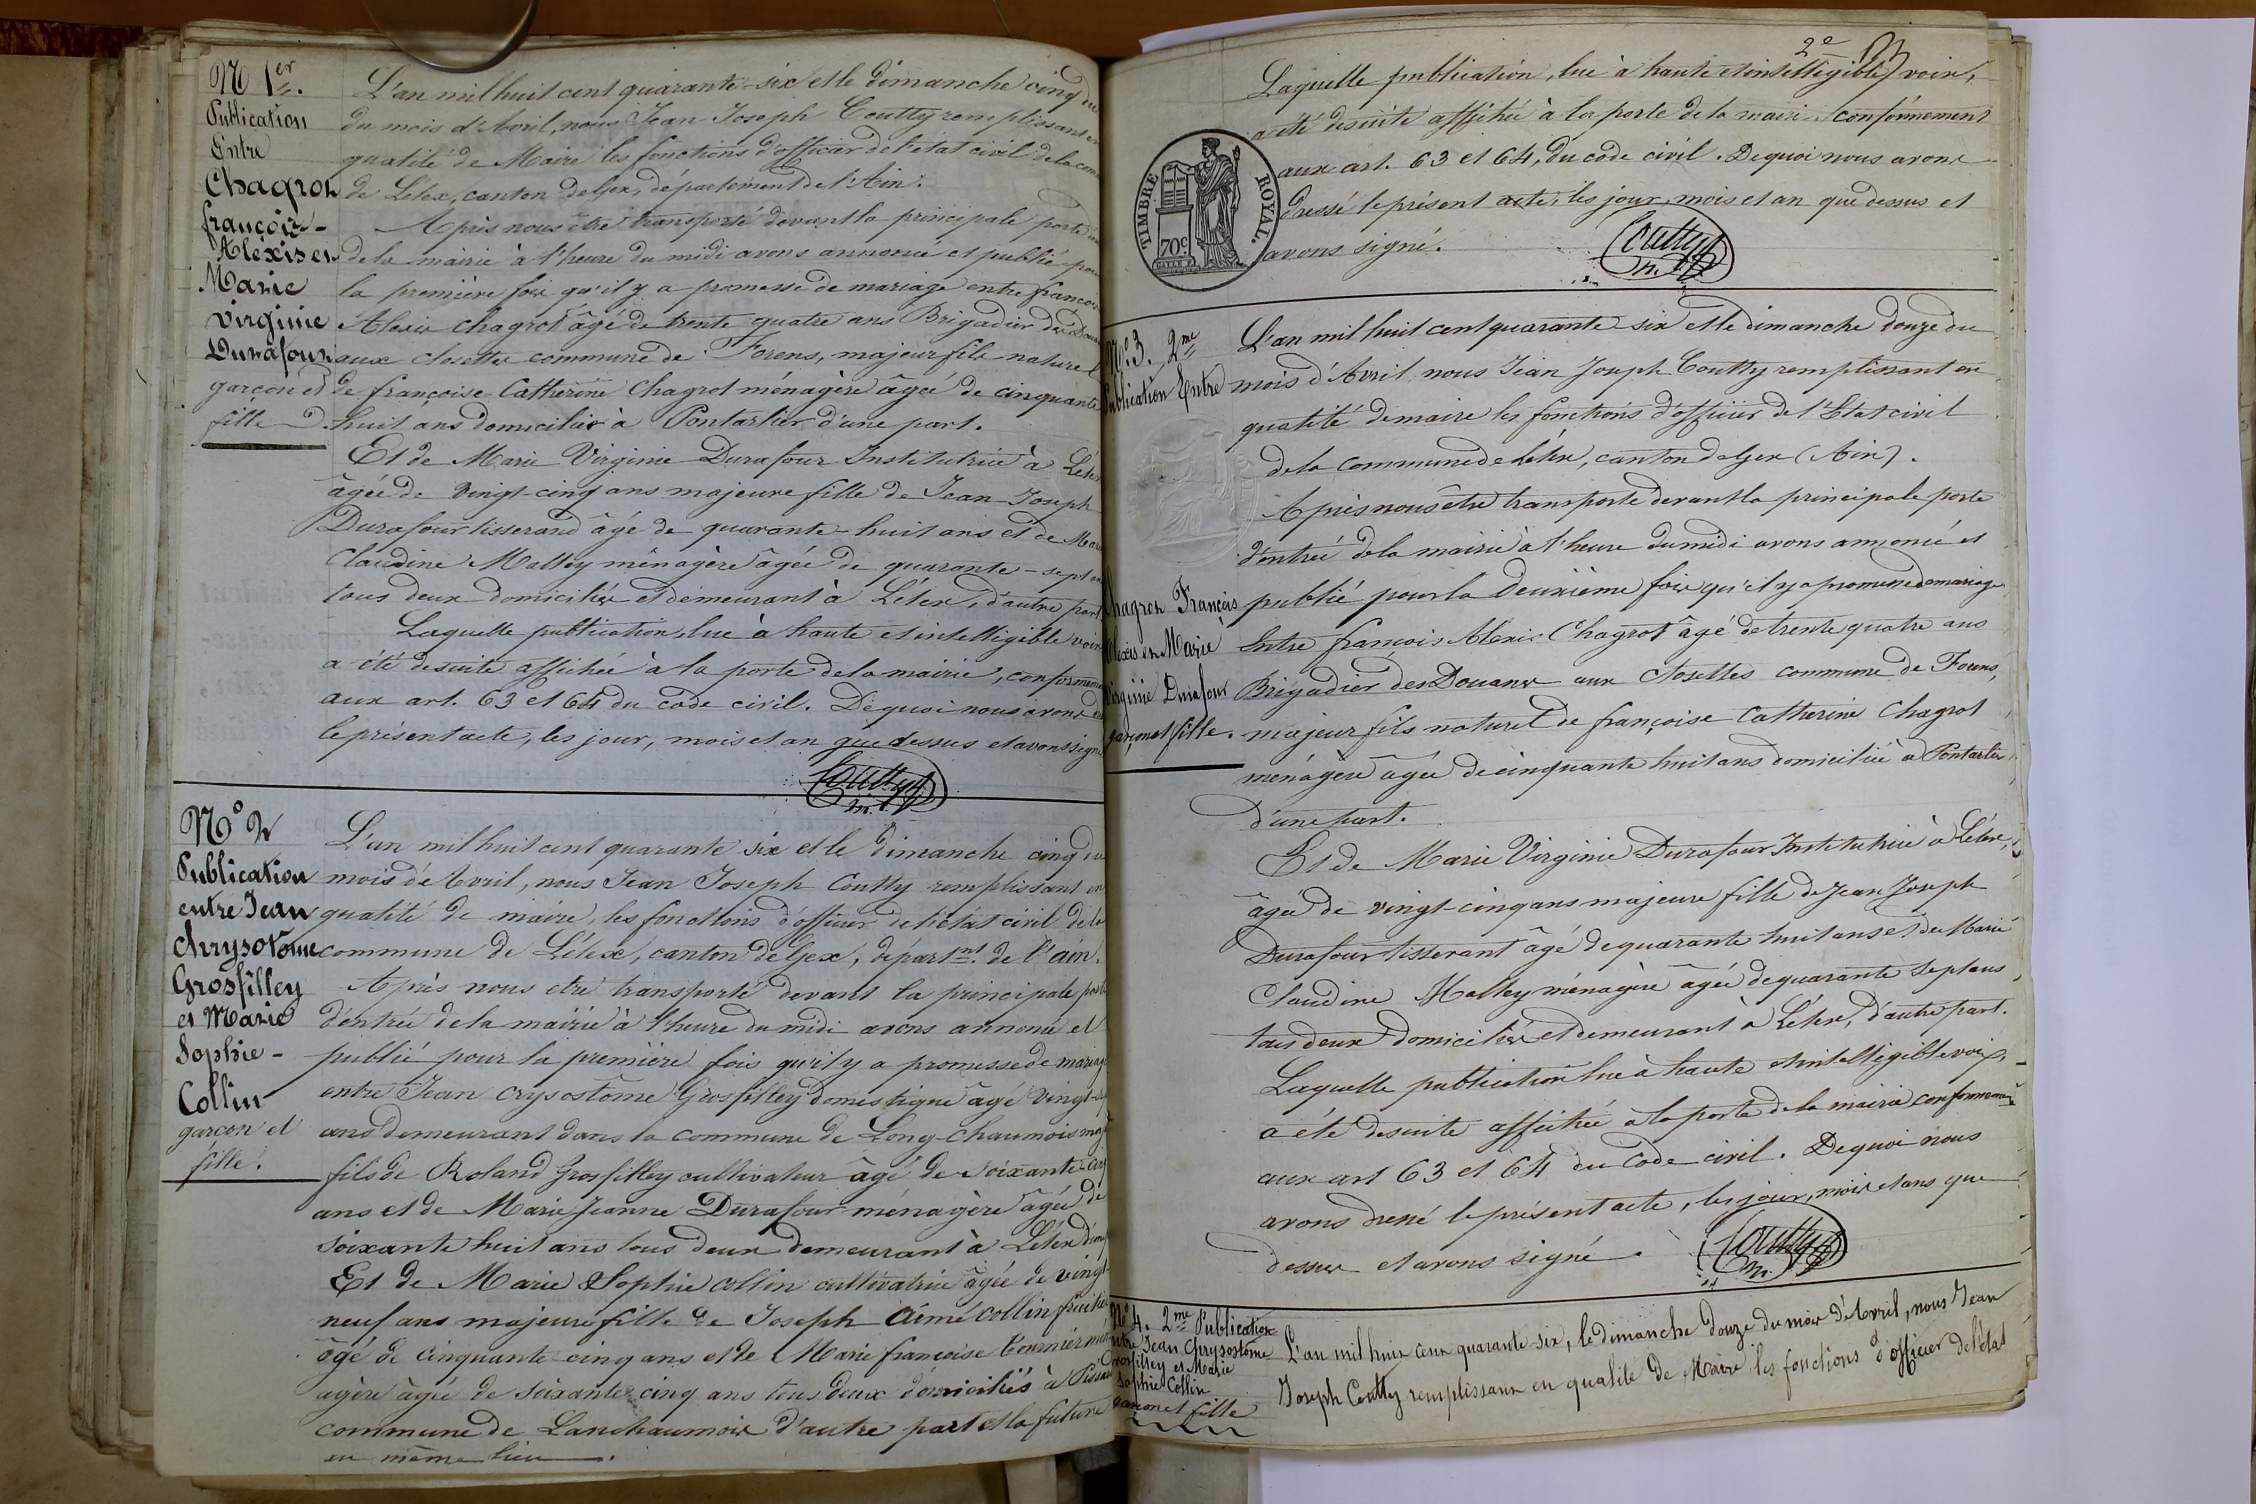 N° 1er.
Publication
Entre
Chagrot
françois-
Alexis et
Marie
Virginie
Durafour
garçon et
fille
L'an mil huit cent quarante-six et le dimanche cinq
du mois d'Avril, nous Jean Joseph Coutty remplissant en
qualité de Maire les fonctions d'officier de l'état civil de la com
de Lélex, canton de Gex, département de l'Ain.
Après nous être transporté devant la principale porte
de la mairie à l'heure du midi avons annoncé et publié pour
la première fois qu'il y a promesse de mariage entre françois
Alexis Chagrot âgé de trente quatre ans Brigadier des Douanes
aux closettes commune de Forens, majeur fils naturel
de françoise Catherine Chagrot ménagère âgée de cinquante
huit ans domiciliée à Pontarlier d'une part.
Et de Marie Virginie Durafour Institutrice à Lélex
âgée de vingt-cinq ans majeure fille de Jean Joseph
Durafour tisserand âgé de quarante-huit ans et de Marie
Claudine Malley ménagère âgée de quarante-sept ans
tous deux domiciliés et demeurant à Lélex, d'autre part
Laquelle publication, lue à haute et intelligible voix
a été desuite affichée à la porte de la mairie, conformém
aux art. 63 et 64 du code civil. Dequoi nous avons
le présent acte, les jour, mois et an que dessus et avons signé
Coutty
m.
N° 2
Publication
entre Jean
chrysotome
Grosfilley
et Marie
Sophie-
Collin
garçon et
fille.
L'an mil huit cent quarante six et le dimanche cinq du
mois d'Avril, nous Jean Joseph Coutty remplissant en
qualité de maire, les fonctions d'officier de l'état civil de la
commune de Lélex, canton de Gex, départ.nt de l'ain.
Après nous etre transporté devant la principale porte
d'entrée de la mairie à l'heure du midi avons annoncé et
publié pour la première fois qu'il y a promesse de mariage
entre Jean crysostôme Grosfilley domestique âgé vingt-
ans demeurant dans la commune de Long-chaumois maj
fils de Roland Grosfilley cultivateur âgé de soixante-
ans et de Marie Jeanne Durafour ménagère âgée de
soixante huit ans tous deux demeurant à Lélex d'une
Et de Marie Sophie collin cultivatrice âgée de vingt-
neuf ans majeure fille de Joseph Aimé collin fruitier
âgé de cinquante-cinq ans et de Marie françoise
agère âgée de soixante cinq ans tous deux domiciliés à
commune de Lanchaumois d'autre part et la future
en même lieu.
2e
Laquelle publication, lue à haute et intelligible voix,
a été desuite affichée à la porte de la mairie conformément
aux art. 63 et 64, du code civil. Dequoi nous avons
dressé le présent acte, les jour, mois et an que dessus et
avons signé.
Coutty
m.
TIMBRE ROYAL.
70c
N° 3. 2me
Publication Entre
Chagrot François
Alexis et Marie
Virginie Durafour
garçon et fille.
L'an mil huit cent quarante-six et le dimanche douze du
mois d'Avril nous Jean Joseph Coutty remplissant en
qualité de maire les fonctions d'officier de l'Etat civil
de la commune de Lélex, canton de Gex (Ain).
Après nous être transporté devant la principale porte
d'entrée de la mairie à l'heure du midi avons annoncé et
publié pour la deuxième fois qu'il y a promesse de mariage
Entre françois Alexis Chagrot âgé de trente quatre ans
Brigadier des Douanes aux closettes commune de Forens,
majeur fils naturel de françoise Catherine Chagrot
ménagère âgée de cinquante huit ans domiciliée à Pontarlier
d'une part.
Et de Marie Virginie Durafour Institutrice à Lélex,
âgée de vingt-cinq ans majeure fille de Jean Joseph
Durafour tisserant âgé de quarante huit ans et de Marie
Claudine Malley ménagère âgée de quarante sept ans
tous deux domiciliés et demeurant à Lélex, d'autre part.
Laquelle publication lue à haute et intelligible voix,
a été desuite affichée à la porte de la mairie conformément
aux art 63 et 64 du Code civil. Dequoi nous
avons dressé le présent acte, les jour, mois et ans que
dessus et avons signé.
Coutty
m.
N° 4. 2me Publication
entre Jean Chrysostome
Grosfilley et Marie
Sophie Collin
garçon et fille
L'an mil huit cent quarante-six, le dimanche douze du mois d'Avril, nous Jean
Joseph Coutty remplissant en qualité de Maire les fonctions d'officier de l'état